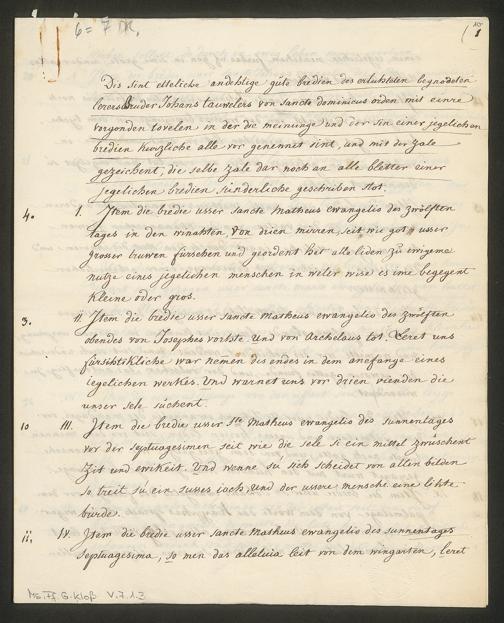 6 = 7 M.
Dis sint etteliche andehtige güte bredien des erluhteten begnodeten
lerers bruder Johans tauwelers von sancte dominicus orden mit einre
vorgonden tovelen in der die meininge und der sin einer jegelichen
bredien kurzliche alle vor genennet sint, und mit der zale
gezeichent, die selbe zale dar noch an alle bletter einer
jegelichen bredien sünderliche geschriben stot.
4. I. Item die bredie usser sancte Matheus ewangelio des zwölften
tages in den winahten von drien mirren, seit wie got usser
grosser truwen fürsehen und geordent het alle liden zu ewigeme
nutze eines jegelichen menschen in weler wise es ime begegent
kleine oder gros.
3. II. Item die bredie usser sancte Matheus ewangelio des zwölften
obendes von Josephes vorhte und von Archelaus tot. Leret uns
fürsihtikliche war nemen des endes in dem anefange eines
iegelichen werkes. Und warnet uns vor drien vienden die
unser sele süchent.
10 III. Item die bredie usser Ste Matheus ewangelio des sunnentages
vor der septuagesimen seit wie die sele si ein mittel zwüschent
Zit und ewikeit. Und wenne sü sich scheidet von allen bilden
so treit sü ein susses ioch, und der ussere mensche eine lehte
bürde.
ii, IV. Item die bredie usser sancte Matheus ewangelio des sunnentages
septuagesima, so men das alleluia leit von dem wingarten, leret
Ms. Ff. G. Kloß V.7.1.3